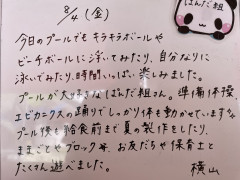 8/4 (金)
ぱんだ組
今日のプールでもキラキラボールや
ビーチボールに浮いてみたり、自分なりに
泳いでみたり、時間いっぱい楽しみました。
プールが大好きなぱんだ組さん。準備体操、
エビカニクスの踊りでしっかり体も動かせています。
プール後も給食前まで夏の製作をしたり、
ままごとやブロック等、お友だちや保育士と
たくさん遊べました。
横山